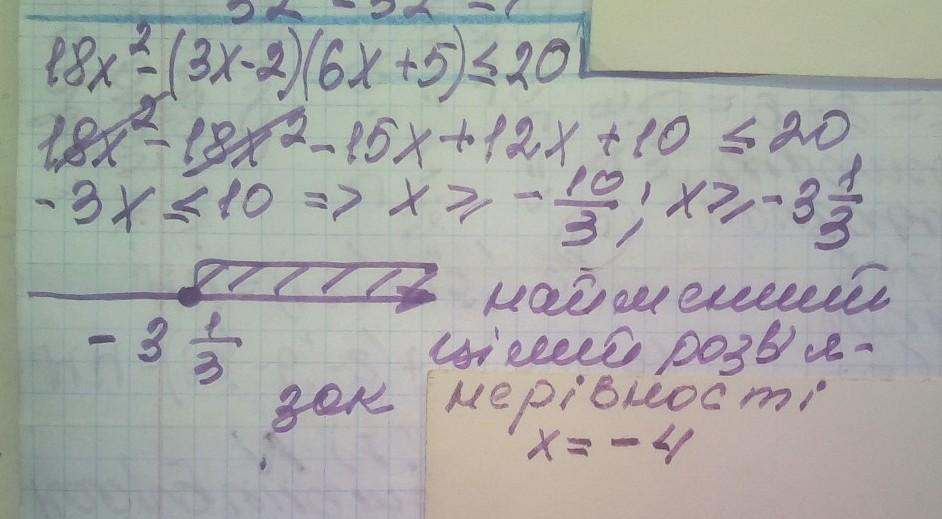 18x² - (3x-2)(6x+5) ≤ 20
18x² - 18x² - 15x + 12x + 10 ≤ 20
-3x ≤ 10 => x ≥ - 10/3 ; x ≥ - 3 1/3
- 3 1/3
найменший
цілий розв'я-
зок нерівності
x = - 4